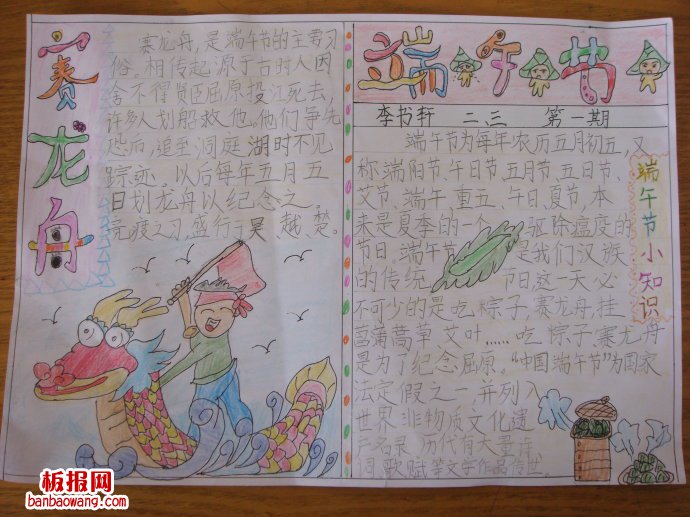 赛龙舟
赛龙舟,是端午节的主要习
俗。相传起源于古时人因
舍不得贤臣屈原投江死去,
许多人划船救他。他们争先
恐后,追至洞庭湖时不见
踪迹。以后每年五月五
日划龙舟以纪念之。
竞渡之习,盛行于吴、越、楚。
端午节
李书轩 二、三 第一期
端午节为每年农历五月初五,又
称端阳节、午日节、五月节、五日节、
艾节、端午、重五、午日、夏节,本
来是夏季的一个 驱除瘟疫的
节日,端午节 是我们汉族
的传统 节日,这一天必
不可少的是吃粽子,赛龙舟,挂
菖蒲蒿草艾叶……吃粽子赛龙舟
是为了纪念屈原。“中国端午节”为国家
法定假之一 并列入
世界非物质文化遗
名录 历代有大量诗
词歌赋等文学作品传世。
端午节小知识
板报网
banbaowang.com